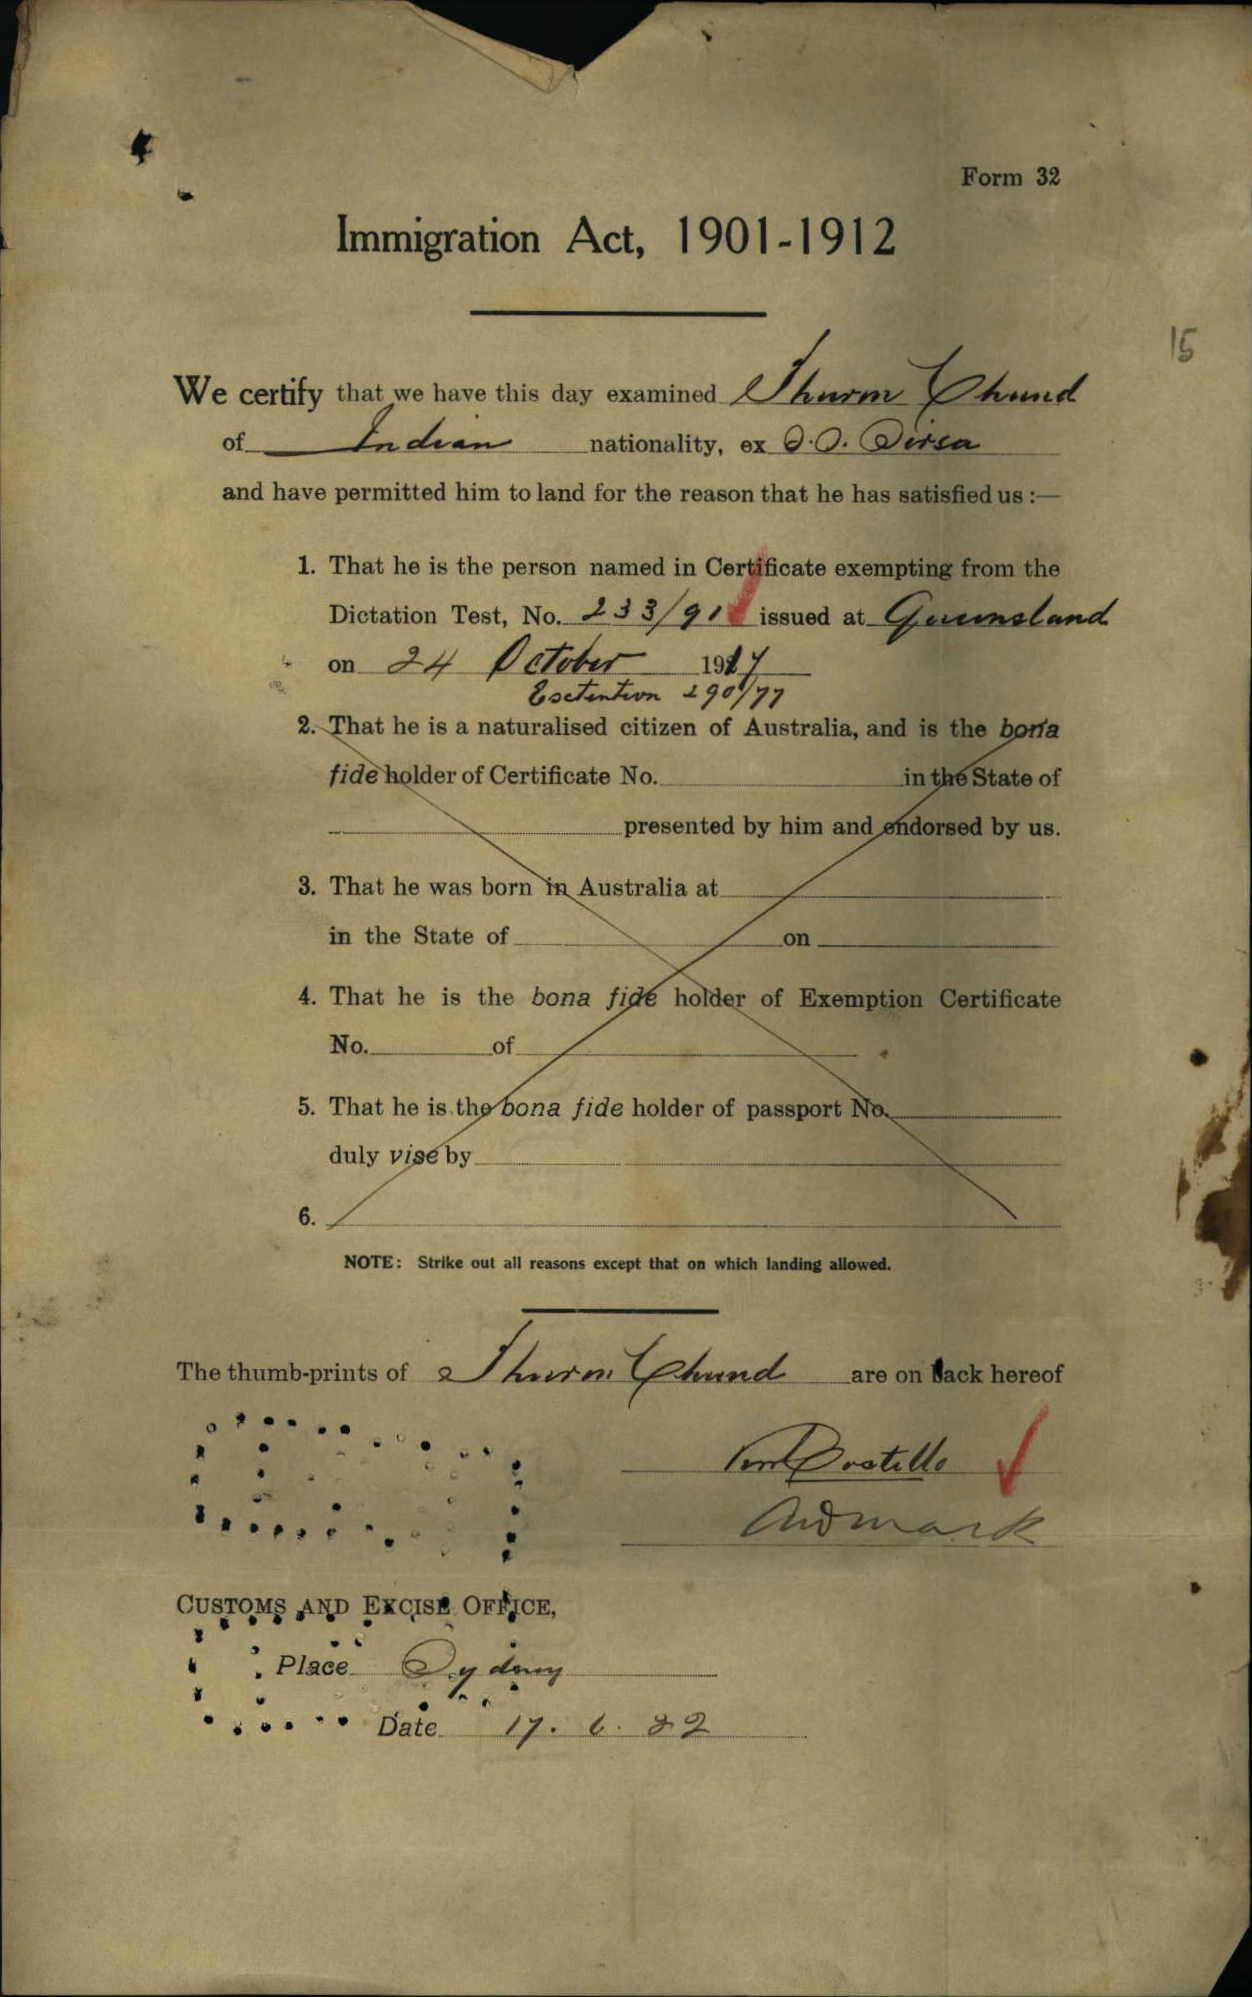 Form 32
Immigration Act, 1901-1912
15
We certify that we have this day examined Thurm Chund
of Indian nationality, ex S.S. Sirsa
and have permitted him to land for the reason that he has satisfied us :—
1. That he is the person named in Certificate exempting from the
Dictation Test, No. 233/91 issued at Queensland
on 24 October 1917
Exctention 290/77
2. That he is a naturalised citizen of Australia, and is the bona
fide holder of Certificate No. in the State of
presented by him and endorsed by us.
3. That he was born in Australia at
in the State of on
4. That he is the bona fide holder of Exemption Certificate
No. of
5. That he is the bona fide holder of passport No.
duly visé by
6.
NOTE: Strike out all reasons except that on which landing allowed.
The thumb-prints of Thurm Chund are on back hereof
Costello
CUSTOMS AND EXCISE OFFICE,
Place Sydney
Date 17. 6. 22